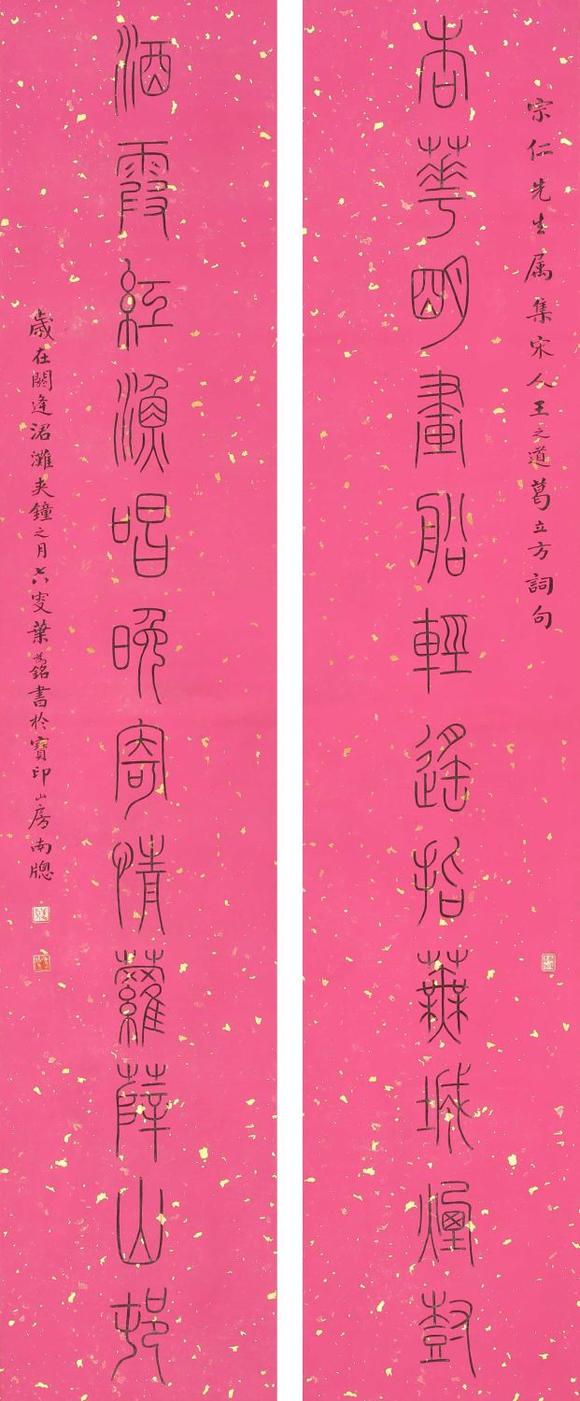 宗仁先生属集宋人王之道葛立方詞句
杏華朙畫船輕遙指蕪城煙尌
酒霞紅漁唱晚寄情蘿薜山邨
歲在閼逢涒灘夾鐘之月叟葉為銘書於寶印山房南牕